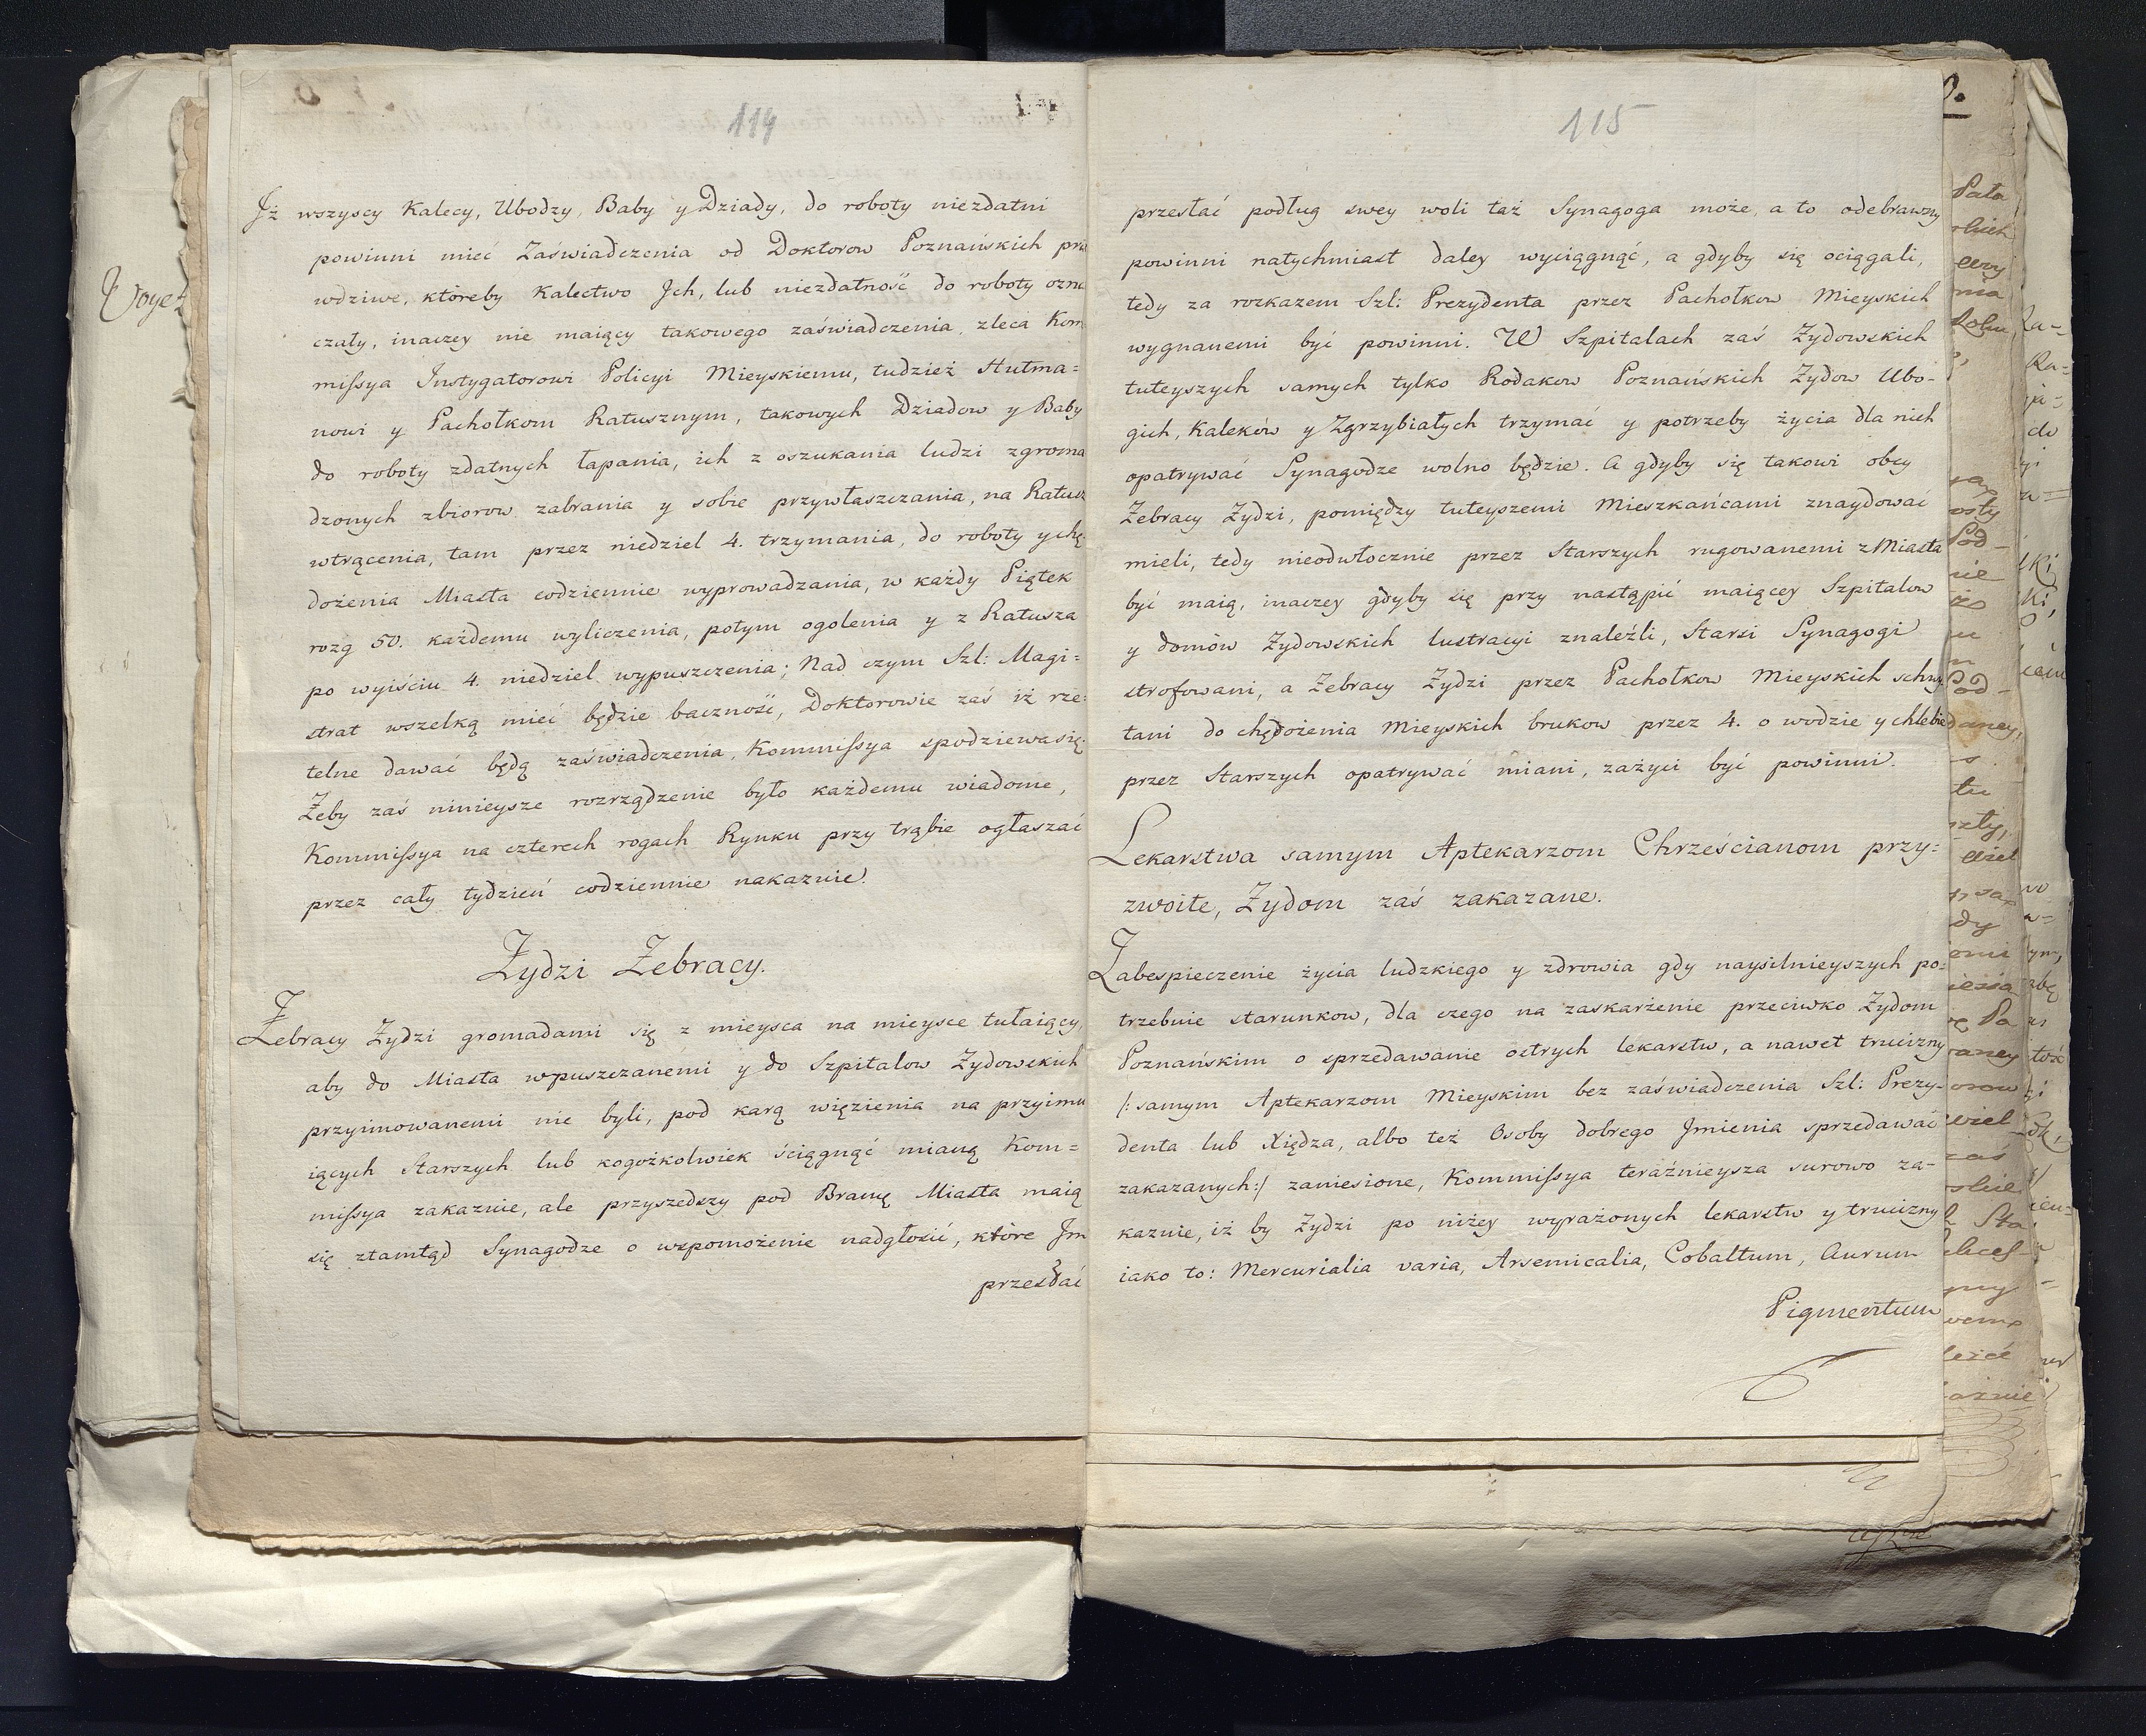 114
Jż wszyscy Kalecy, Ubodzy, Baby y Dziady, do roboty niezdatni
powinni mieć Zaświadczenia od Doktorow Poznańskich pra
wdziwe, któreby Kalectwo Jch, lub niezdatność do roboty ozna
czały, inaczey nie maiący takowego zaświadczenia, zleca Kom
mißya Instygatorowi Policyi Mieyskiemu, tudzież Hutma=
nowi y Pachołkom Ratusznym, takowych Dziadow y Baby
do roboty zdatnych łapania, ich z oszukania ludzi zgroma
dzonych zbiorow zabrania y sobie przywłaszczania, na Ratusz
wtrącenia, tam przez niedziel 4. trzymania, do roboty ychę
dożenia Miasta codziennie wyprowadzania, w każdy Piątek
rozg 50. każdemu wyliczenia, potym ogolenia y z Ratusza
po wyiściu 4. niedziel wypuszczenia; Nad czym Szl: Magi=
strat wszelką mieć będzie baczność, Doktorowie zaś iż rze=
telne dawać będą zaświadczenia, Kommißya spodziewa się.
Żeby zaś ninieysze rozrządzenie było każdemu wiadome,
Kommißya na czterech rogach Rynku przy trąbie ogłaszać
przez cały tydzień codziennie nakazuie.
Żydzi Żebracy.
Żebracy Żydzi gromadami się z mieysca na mieysce tułaiący,
aby do Miasta wpuszczanemi y do Szpitalow Żydowskich
przyimowanemi nie byli, pod karą więzienia na przyimu
iących Starszych lub kogożkolwiek ściągnąć mianą Kom=
mißya zakazuie, ale przyszedszy pod Bramę Miasta maią
się ztamtąd Synagodze o wspomożenie nadgłosić, które Jm
przesłać
115
przesłać podług swey woli taż Synagoga może, a to odebrawszy
powinni natychmiast daley wyciągnąć, a gdyby się ociągali,
tedy za rozkazem Szl: Prezydenta przez Pachołkow Mieyskich
wygnanemi być powinni. W Szpitalach zaś Żydowskich
tuteyszych samych tylko Rodakow Poznańskich Żydow Ubo-
gich, Kaleków y Zgrzybiałych trzymać y potrzeby życia dla nich
opatrywać Synagodze wolno będzie. A gdyby się takowi obcy
Żebracy Żydzi, pomiędzy tuteyszemi Mieszkańcami znaydować
mieli, tedy nieodwłocznie przez Starszych rugowanemi z Miasta
być maią, inaczey gdyby się przy nastąpić maiącey Szpitalow
y domów Żydowskich lustracyi znaleźli, Starsi Synagogi
strofowani, a Żebracy Żydzi przez Pachołkow Mieyskich schwy
tani do chędożenia Mieyskich brukow przez 4. o wodzie y chlebie
przez Starszych opatrywać miani, zażyci być powinni.
Lekarstwa samym Aptekarzom Chrześcianom przy=
zwoite, Żydom zaś zakazane.
Zabespieczenie życia ludzkiego y zdrowia gdy naysilnieyszych po=
trzebuie starunkow, dla czego na zaskarżenie przeciwko Żydom
Poznańskim o sprzedawanie ostrych lekarstw, a nawet trucizny
/: samym Aptekarzom Mieyskim bez zaświadczenia Szl: Prezy-
denta lub Xiędza, albo też Osoby dobrego Jmienia sprzedawać
zakazanych :/ zaniesione, Kommißya teraźnieysza surowo za-
kazuie, iż by Żydzi po niżey wyrażonych lekarstw y trucizny
iako to: Mercurialia varia, Arsemicalia, Cobaltum, Aurum
Pigmentum